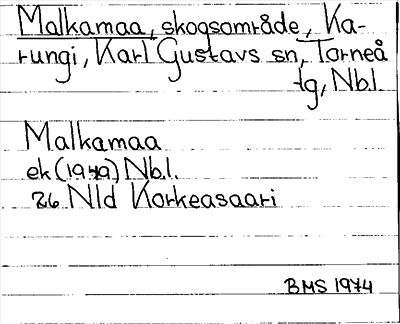 Malkamaa, skogsområde, Ka-
rungi, Karl Gustavs sn, Torneå
tg, Nbl.
Malkamaa
ek (1949) Nb.l.
26 Nld Korkeasaari
BMS 1974